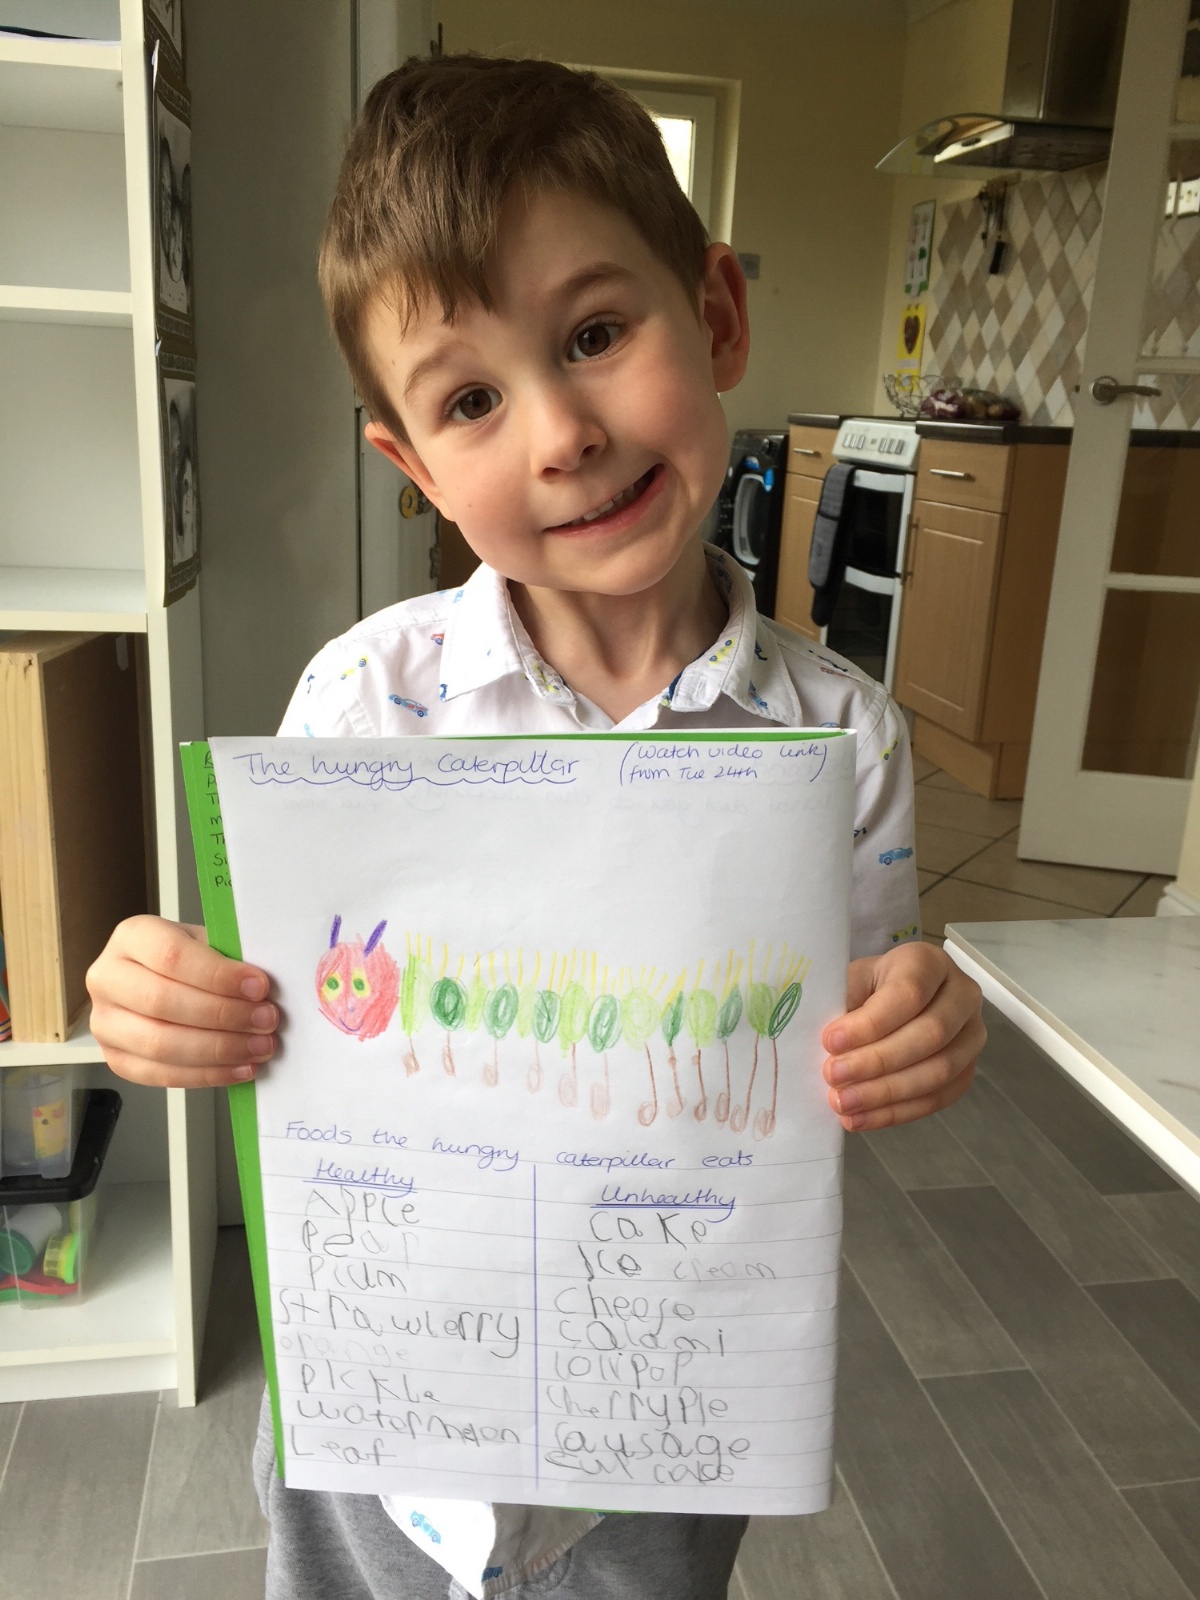 The hungry Caterpillar
(Watch video link)
from Tue 24th
Foods the hungry caterpillar eats
Healthy
Apple
Pear
Plum
Strawberry
orange
pickle
watermelon
Leaf
Unhealthy
cake
Ice cream
cheese
salami
lollipop
cherrypie
sausage